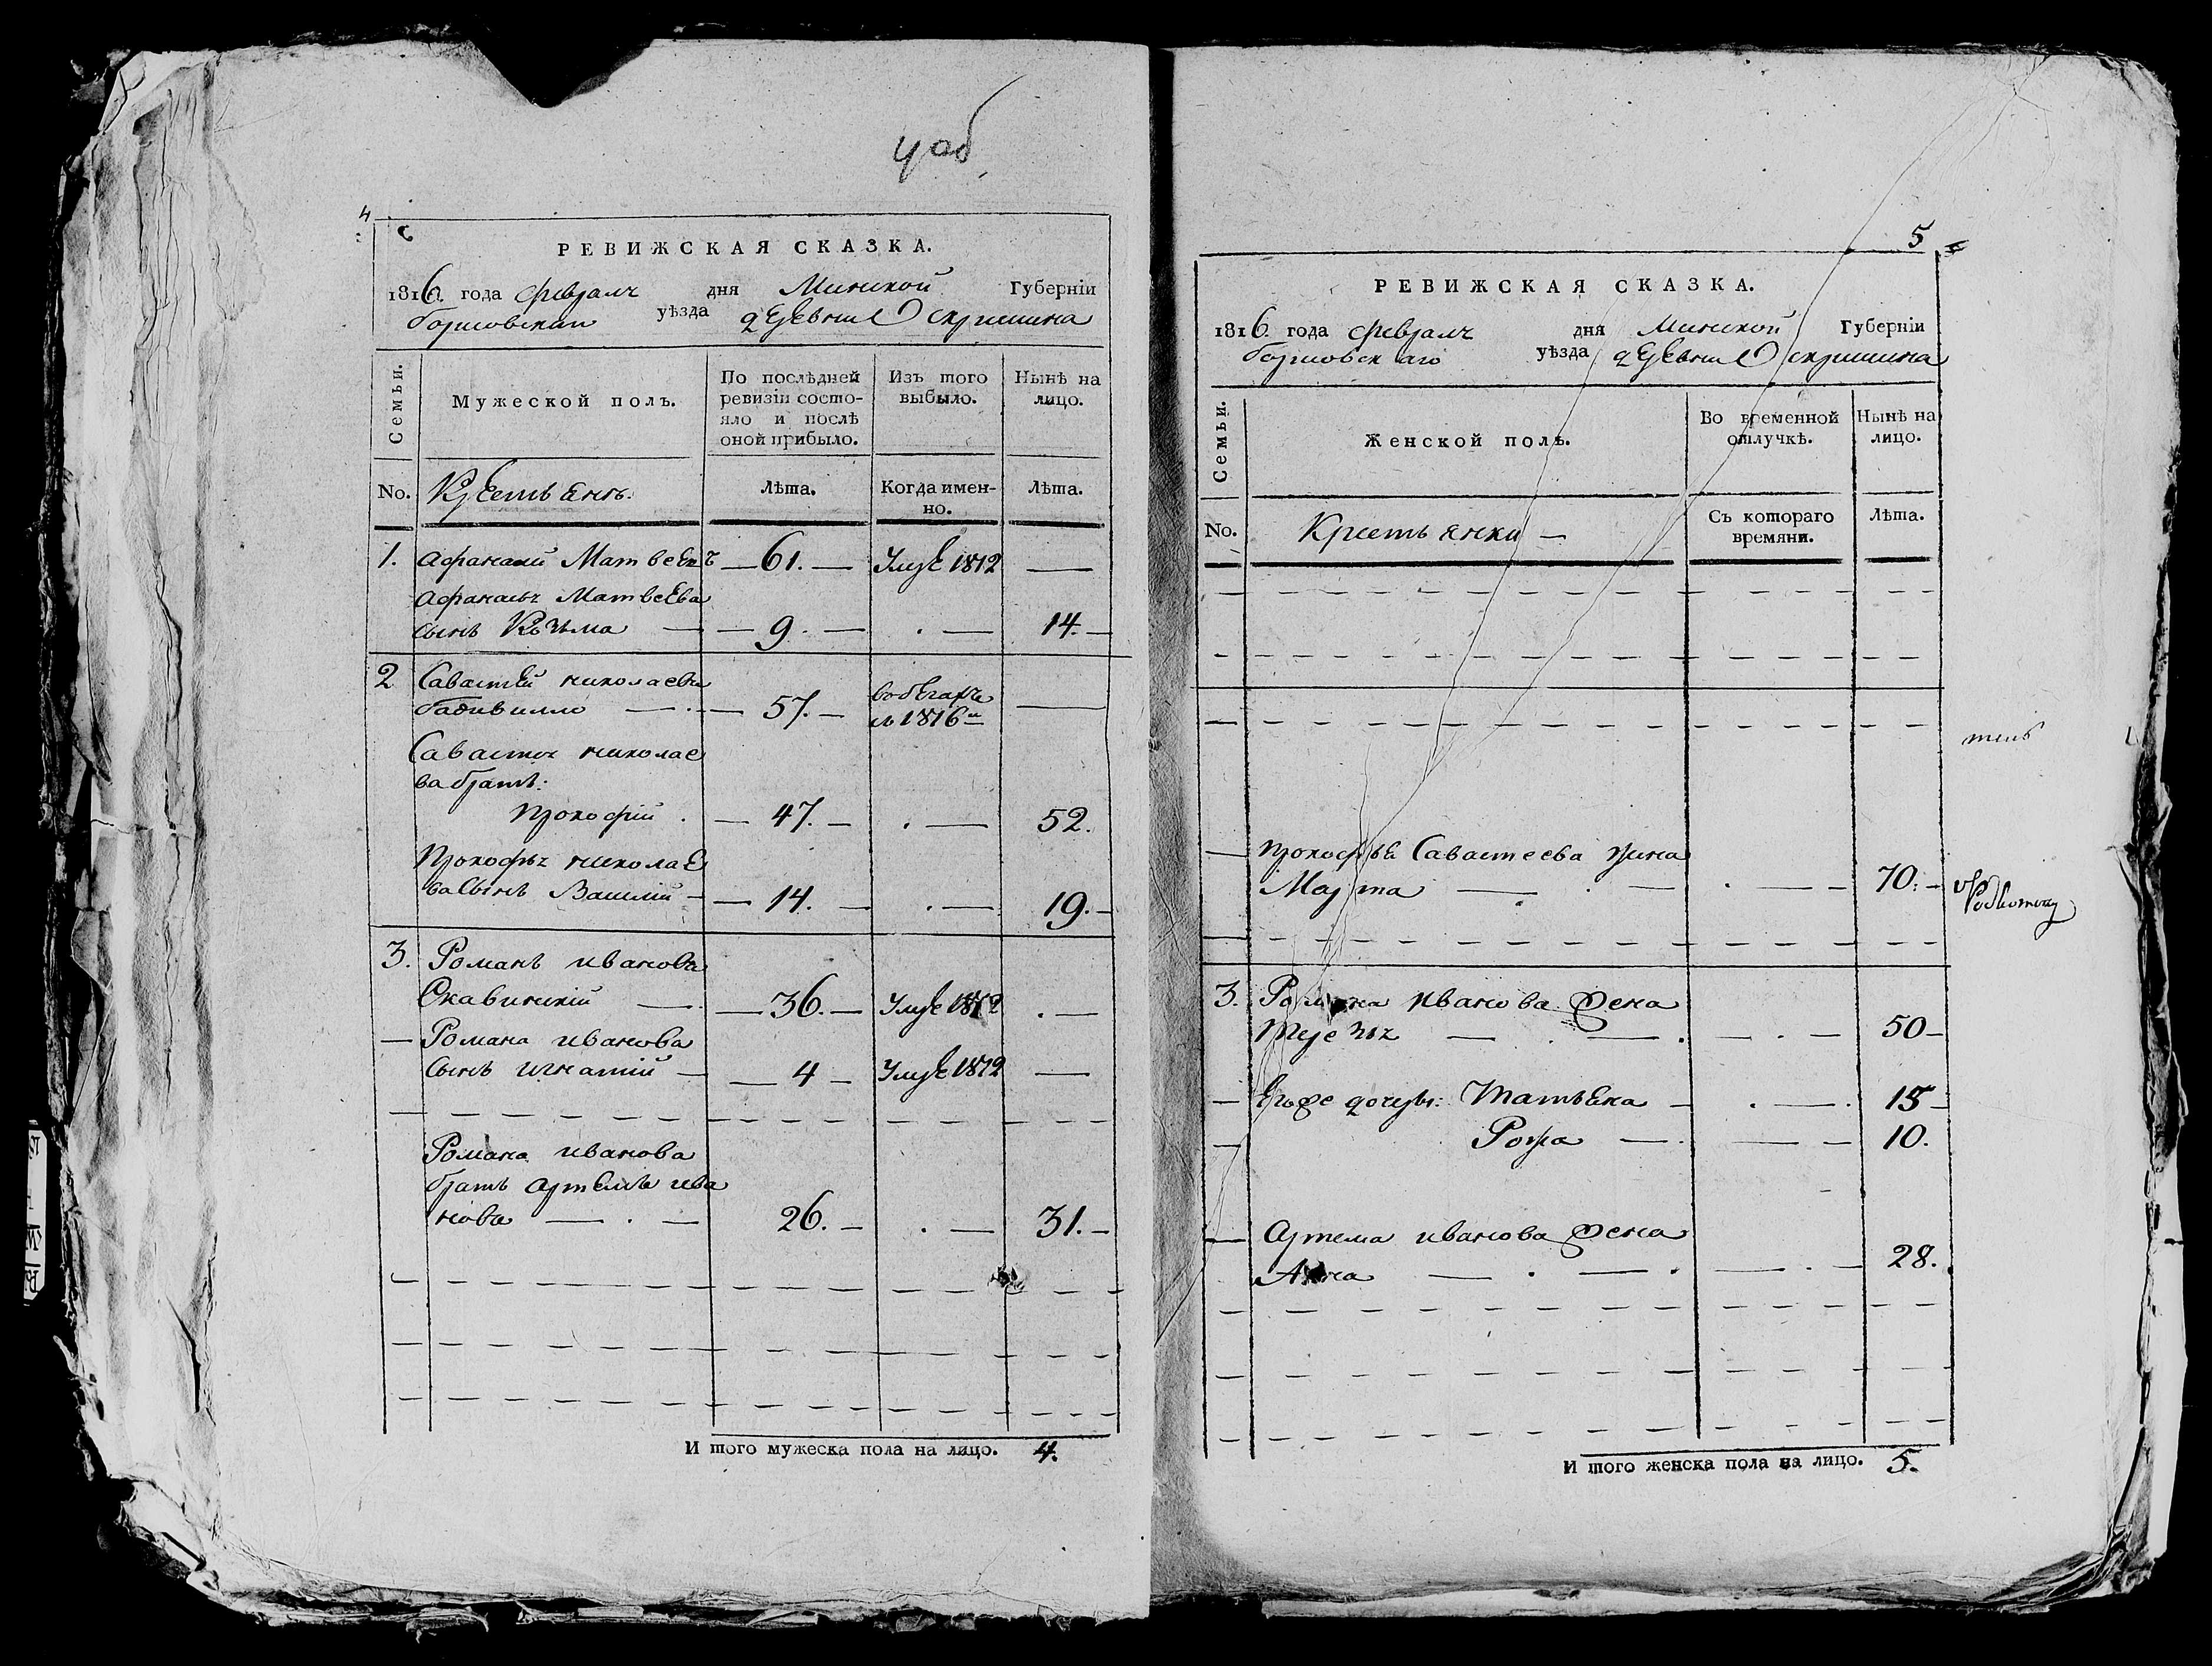 4 об
4
РЕВИЖСКАЯ СКАЗКА.
1816. года февраля дня Минской Губерніи
борисовскаго уѣзда деревни Оскришина
Семьи.
Мужеской полъ.
По послѣдней ревизіи состояло и послѣ оной прибыло.
Изъ того выбыло.
Нынѣ на лицо.
No. Крестьянъ.
Лѣта.
Когда именно.
Лѣта.
1. Афанасий Матвеевъ — 61. — Умре 1812 —
Афанасья Матвеева
сынъ Козьма — — 9. — . — 14. —
2 Савастей николаевъ
— 57. — в бегахъ
съ 1816го —
Савастья николае
ва братъ:
Прокофій . — 47. — . — 52.
Прокофья николае
ва Сынъ Василій — — 14. — . — 19. —
3. Романъ иванова
Скавинскій — — 36. — Умре 1812 . —
— Романа иванова
Сынъ игнатій — — 4 — Умре 1812 —
Романа иванова
братъ артемъ ива
нова — . — 26. — . — 31. —
И того мужеска пола на лицо. 4.
5
РЕВИЖСКАЯ СКАЗКА.
1816. года февраля дня Минской Губерніи
борисовскаго уѣзда деревни Оскришина
Семьи.
Женской полъ.
Во временной отлучкѣ.
Нынѣ на лицо.
No. Крестьянки —
Съ котораго времяни.
Лѣта.
— прокофья Савастеева
Марта — . — . — — 70. —
3. Романа Иванова жена
Терезя — . — . — . — 50 —
— Егоже дочери: Татьяна — . — . 15 —
— Роза — . — — 10.
— Артема иванова жена
Анна — . — . — . — 28.
И того женска пола на лицо. 5.